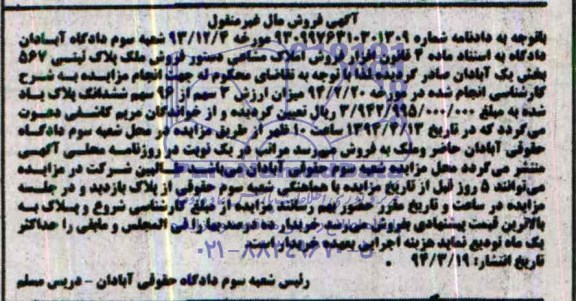 آگهی فروش مال غیرمنقول
باتوجه به دادنامه شماره ۹۳۰۹۹۷۶۳۱۰۳۰۱۳۰۹ مورخه ۹۳/۱۲/۴ شعبه سوم دادگاه آبادان
دادگاه به استناد ماده ۴ قانون افراز فروش املاک مشاعی دستور فروش ملک پلاک ثبتی ۵۶۷
بخش یک آبادان صادر گردیده لذا با توجه به تقاضای محکوم له جهت انجام مزایده به شرح
کارشناسی انجام شده در مورخه ۹۴/۲/۲۰ میزان ارزش ۳ سهم از ۹۶ سهم ششدانگ پلاک یاد
شده به مبلغ ۳/۹۴۳/۹۹۵/۰۰۰/۰۰۰ ریال تعیین گردیده و از خواندگان مریم کاشفی دعوت
می‌گردد که در تاریخ ۱۳۹۴/۴/۱۳ ساعت ۱۰ ظهر از طریق مزایده در محل شعبه سوم دادگاه
حقوقی آبادان حاضر وملک به فروش میرسد مراتب در یک نوبت در روزنامه محلی آگهی
منتشر می‌گردد محل مزایده شعبه سوم حقوقی آبادان می‌باشد طالبین شرکت در مزایده
می‌توانند ۵ روز قبل از تاریخ مزایده با هماهنگی شعبه سوم حقوقی از پلاک بازدید و در جلسه
مزایده در ساعت و تاریخ مقرر حضور بهم رسانند مزایده از قیمت کارشناسی شروع و پلاک به
بالاترین قیمت پیشنهادی بفروش میرسد خریدار ده درصد بها را فی المجلس و مابقی را حداکثر
یک ماه تودیع نماید هزینه اجرایی بعهده خریدار است
تاریخ انتشار: ۹۴/۳/۱۹
رئیس شعبه سوم دادگاه حقوقی آبادان - دریس مسلم